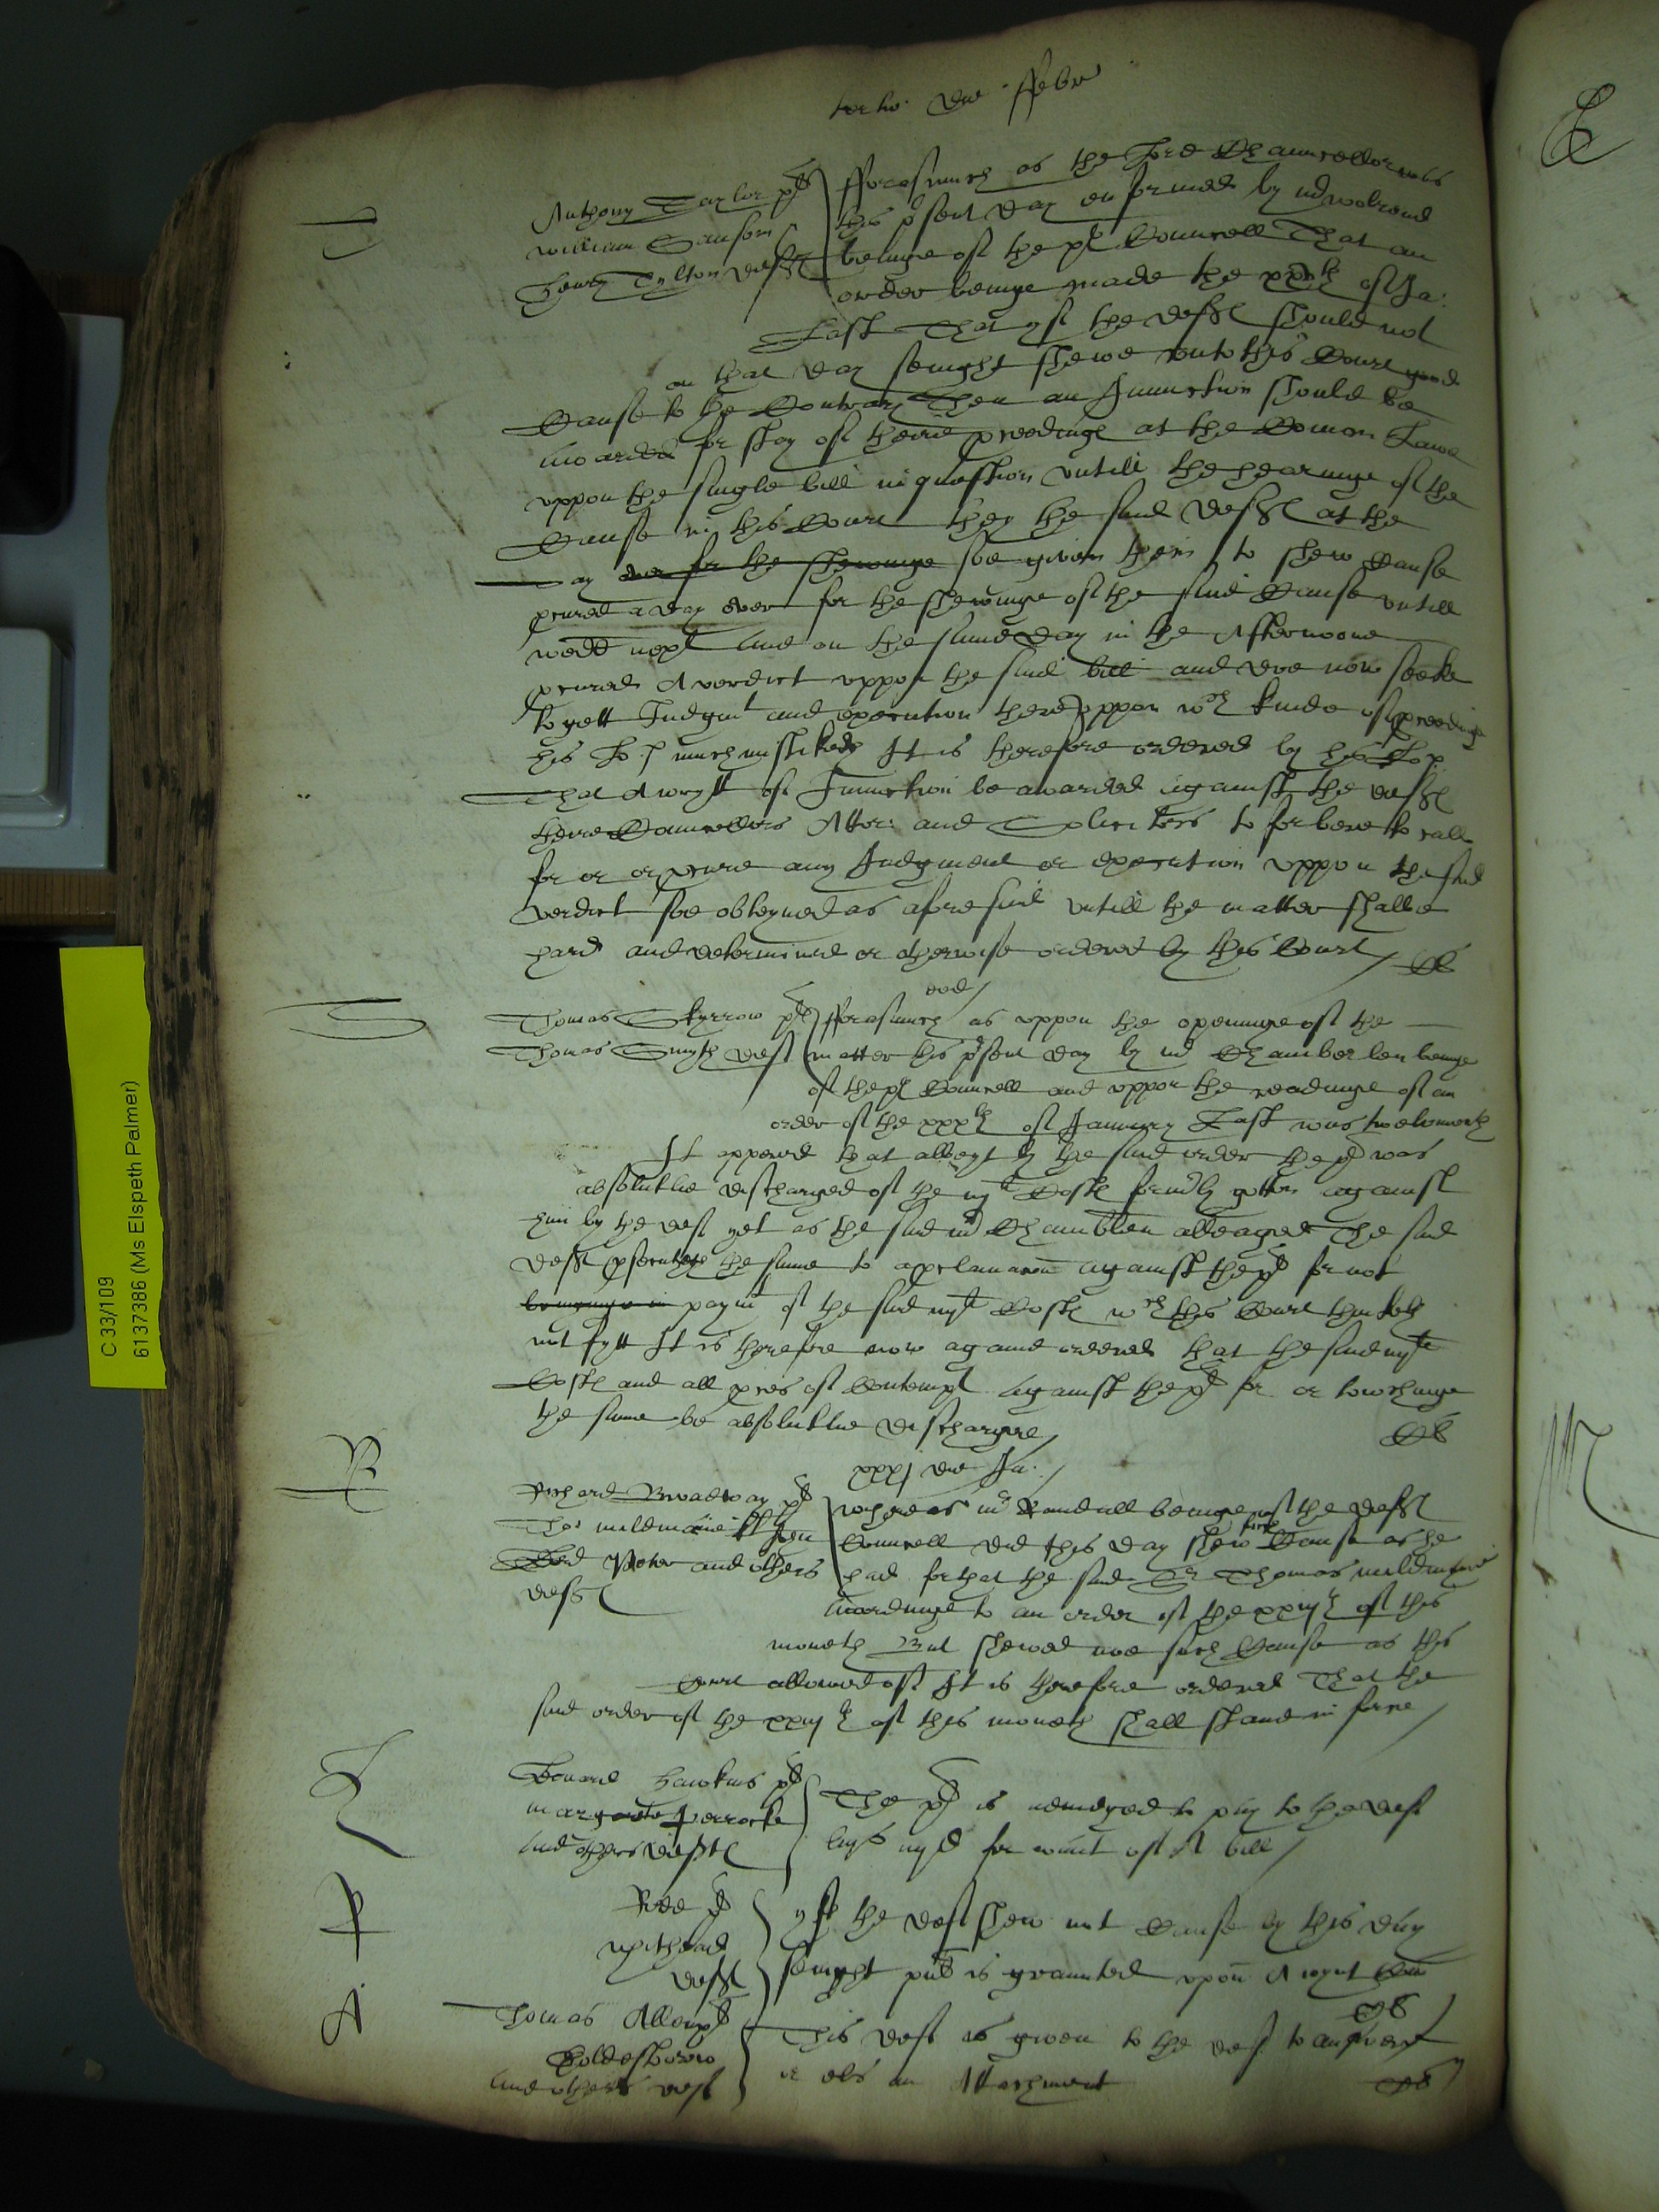 tertio die ffebr
Anthony Taylor pl
William Sansom
Henry Tylton deftes
fforasmuch as the Lord Chauncellor was
this psent day enformed by mr Wolrond
beinge of the pl Councell That an
order beinge made the xxth of Ja:
Last That yf the deftes should not
on that day senight shewe unto this Court good
Cause to the Contrary Then an Iniunction should be
awarded for stay of theire proceedinges at the Comon Lawe
uppon the single bill in question untill the hearinge of the
Cause in this Court they the said deftes at the
day over for the shewinge soe given them to shew Cause
procured a day over for the shewinge of the said Cause untill
wedd next and on the same day in the Afternoone
procured A verdict uppon the said bill and doe now seeke
to gett Judgmt and execution thereuppon wch kinde of proceedinge
his Lo: much mistiketh It is therefore ordered by his Lop
That A wrytt of Iniunction be awarded against the deftes
theire Councellors Attor: and Soliciters to forbere to call
for or procure any Judgment or execution uppon the said
verdict soe obteyned as aforesaid untill the matter shalbe
hard and determined or otherwise ordered by this Court
eod
Thomas Skyrrow pl
Thomas Smyth deft
fforasmuch as uppon the openinge of the
matter this psent day by mr Chamberlen beinge
of the pl Councell and uppon the readinge of an
order of the xxxth of January Last was twelvmonth
It appered that albeyt by the said order the pl was
absolutlie discharged of the Costes formly gotten against
him by the deft yet as the said mr Chamblen alleaged The said
deft psecuteth the same to a proclamacon against the pl for not
bringinge in paymt of the said Costes wch this Court thinketh
not fytt It is therefore now againe ordered that the said
Costes and all proces of Contempt against the pl for or towchinge
the same be absolutlie discharged
xxxj die Ja:
Richard Broadway pl
Tho: mildmaie
and others
deftes
whereas mr Randall beinge of the deftes
Councell did this day shew Cause as he
had for that the said Sr Thomas mildmaie
accordinge to an order of the xxiijth of this
moneth But shewed noe such Cause as this
Court allowed of It is therefore ordered That the
said order of the xxiijth of this moneth shall stand in force
Edward Hawkins pl
margarete
and others deftes
The pl is adiudged to pay to the deft
for want of A bill
Ree pl
whithead
deft
yf the deft shew not Cause by this day
senight pub is graunted upon A
Thomas Allen pl
Goldesborow
and others deft
This deft is given to the deft to answere
or els an Attachment
C 33/109
6137386 (Ms Elspeth Palmer)